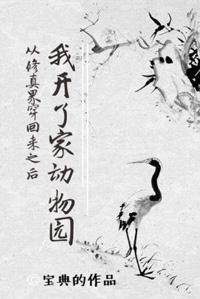 从修真界穿回来之后
我开了家动物园
宝典的作品